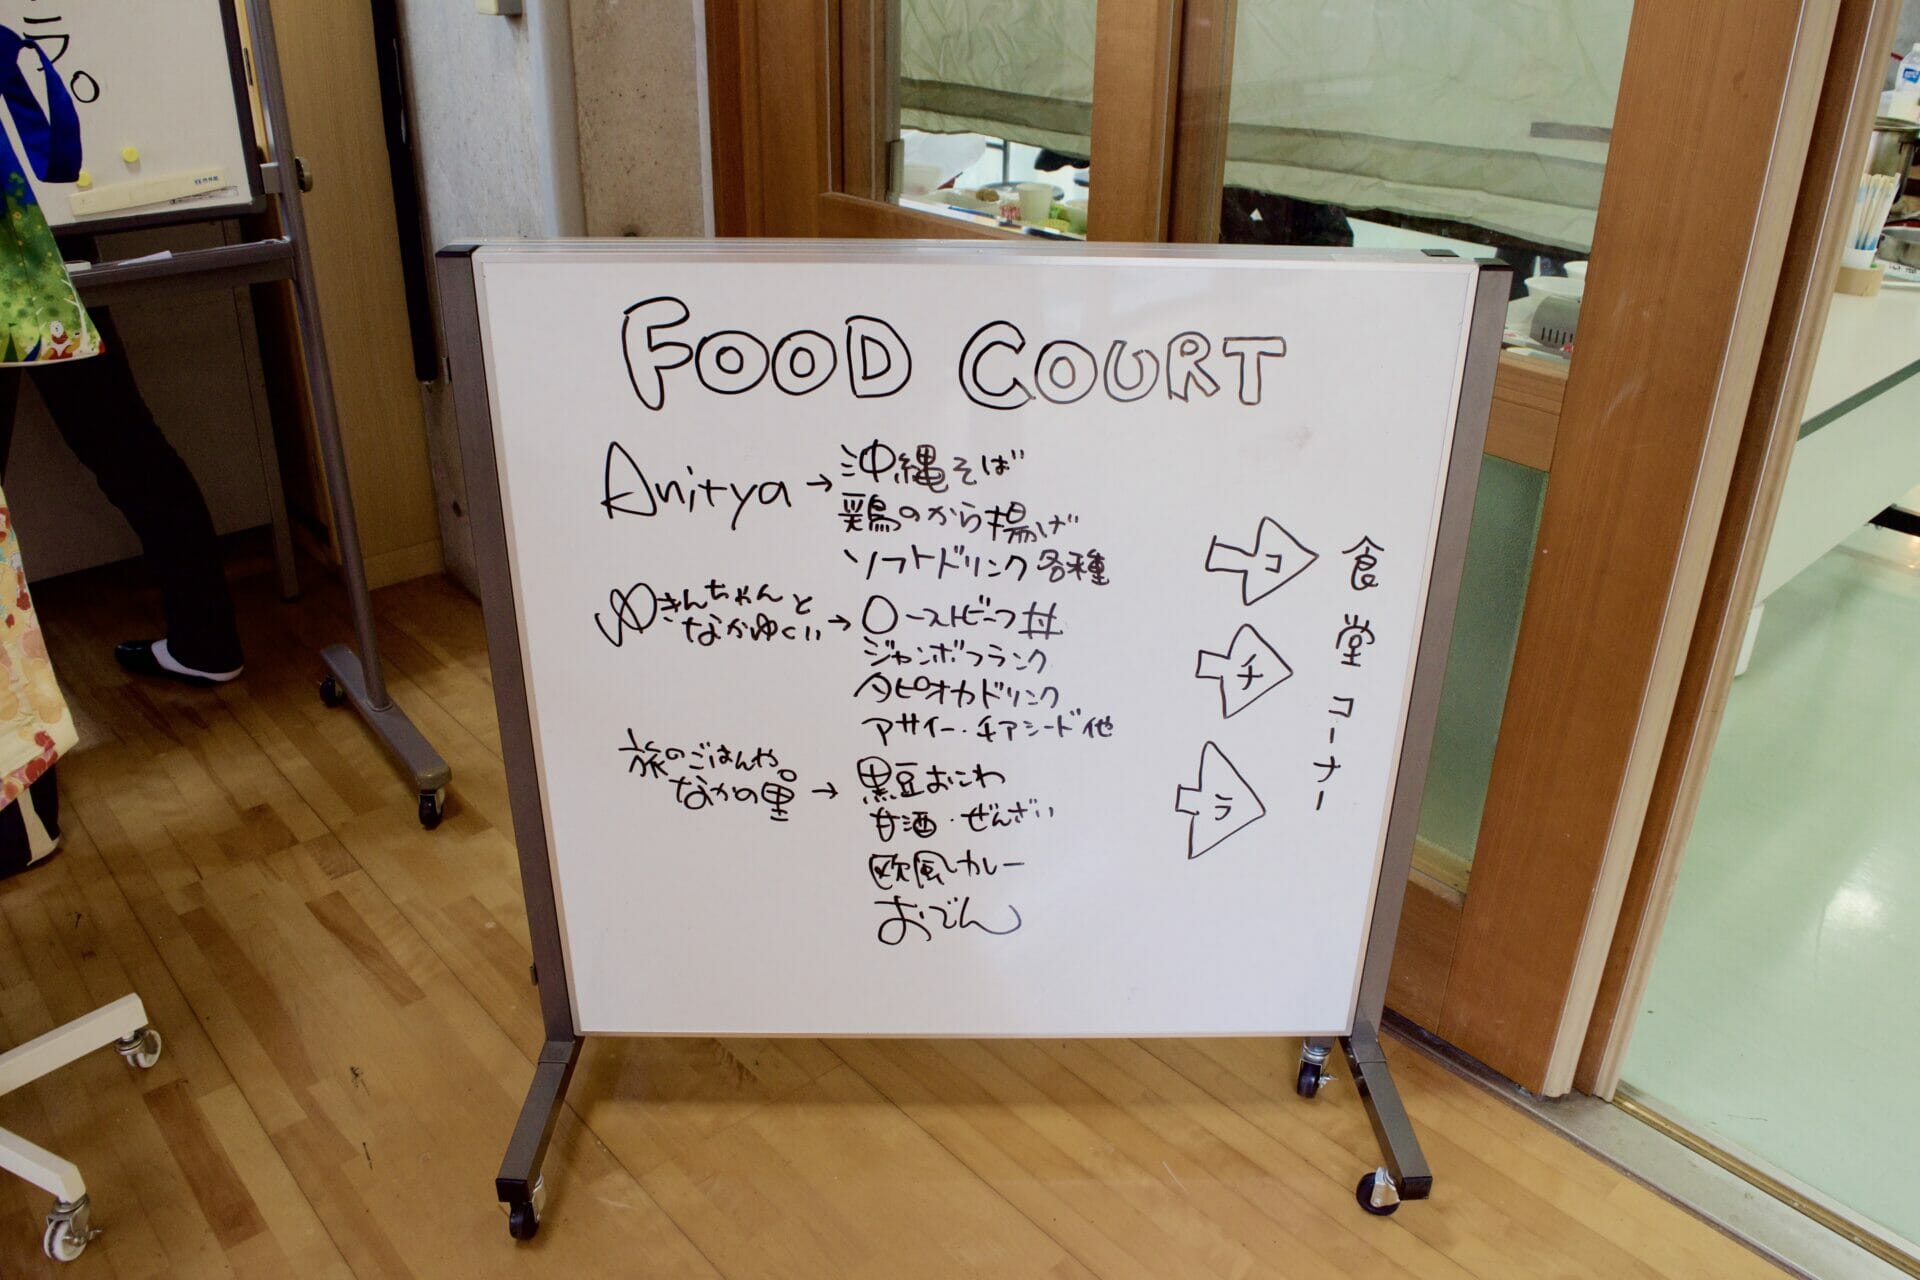 ラ。
FOOD COURT
Anitya → 沖縄そば
鶏のから揚げ
ソフトドリンク各種
ゆきんちゃんと
なかゆくい → ローストビーフ丼
ジャンボフランク
タピオカドリンク
アサイー・チアシード他
旅のごはんや
なかの里。 → 黒豆おこわ
甘酒・ぜんざい
欧風カレー
おでん
コ
チ
ラ
食堂コーナー